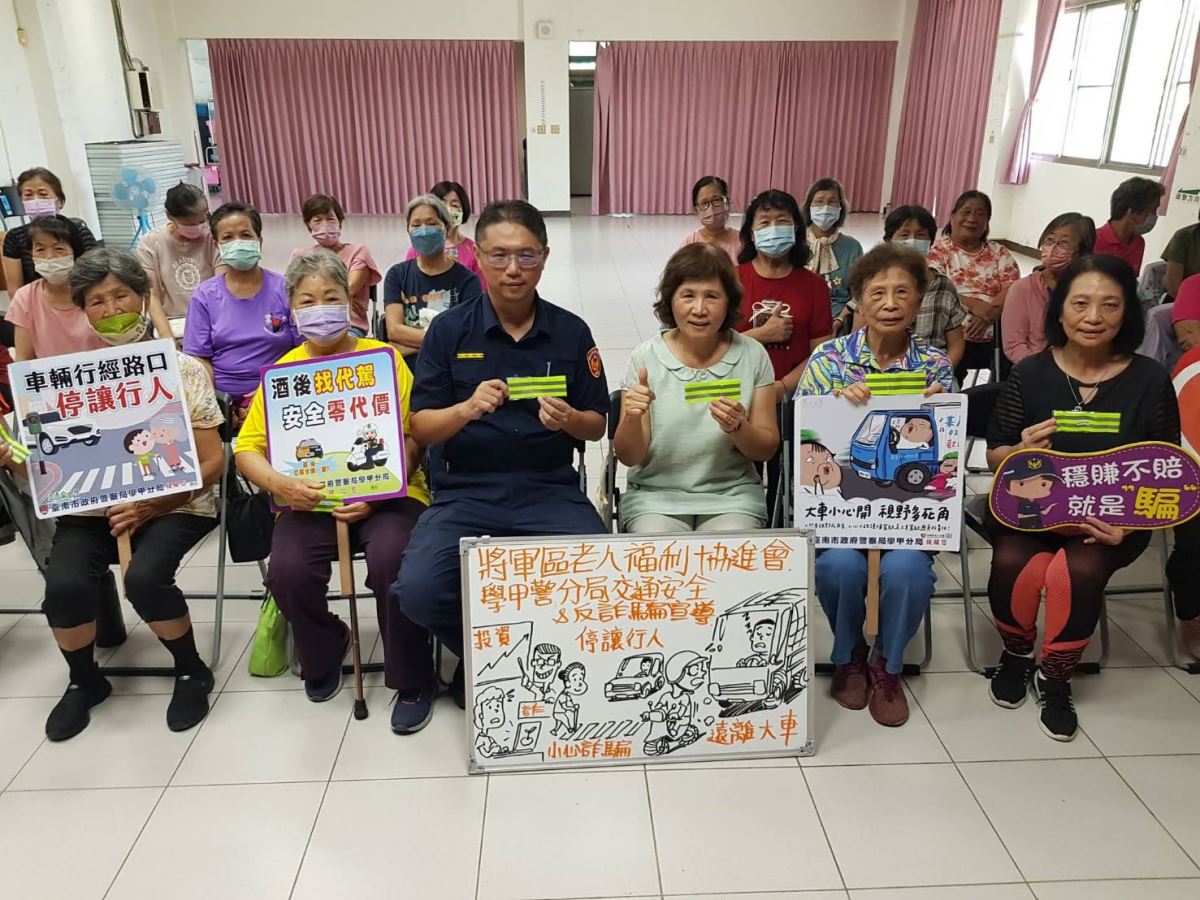 車輛行經路口
停讓行人
臺南市政府警察局學甲分局
酒後找代駕
安全零代價
臺南市政府警察局學甲分局
大車小心開 視野多死角
臺南市政府警察局學甲分局
穩賺不賠
就是"騙"
將軍區老人福利協進會
學甲警分局交通安全
&反詐騙宣導
投資
停讓行人
詐
小心詐騙
遠離大車